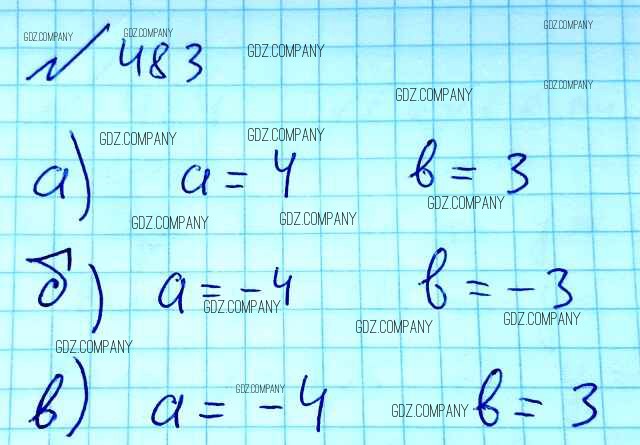 GDZ.COMPANY GDZ.COMPANY GDZ.COMPANY
№ 483 GDZ.COMPANY
GDZ.COMPANY GDZ.COMPANY
GDZ.COMPANY GDZ.COMPANY
а) a = 4 в = 3
GDZ.COMPANY GDZ.COMPANY GDZ.COMPANY
б) a = -4 в = -3
GDZ.COMPANY GDZ.COMPANY GDZ.COMPANY
GDZ.COMPANY
в) a = -4 в = 3
GDZ.COMPANY GDZ.COMPANY